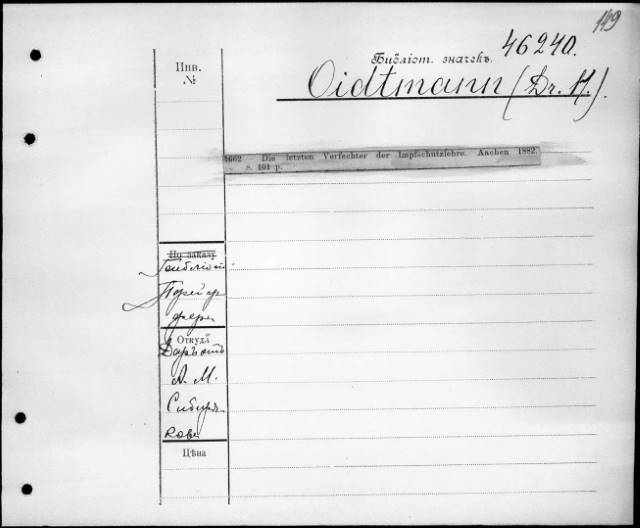 119
46240.
Библіот. значекъ.
Oidtmann (Dr. H.).
Инв.
№
1662 — Die letzten Verfechter der Impfschutzlehre. Aachen 1882.
8. 101 p.
По заказу
Откуда
Даръ отъ
А. М.
Сибиря
кова
Цѣна